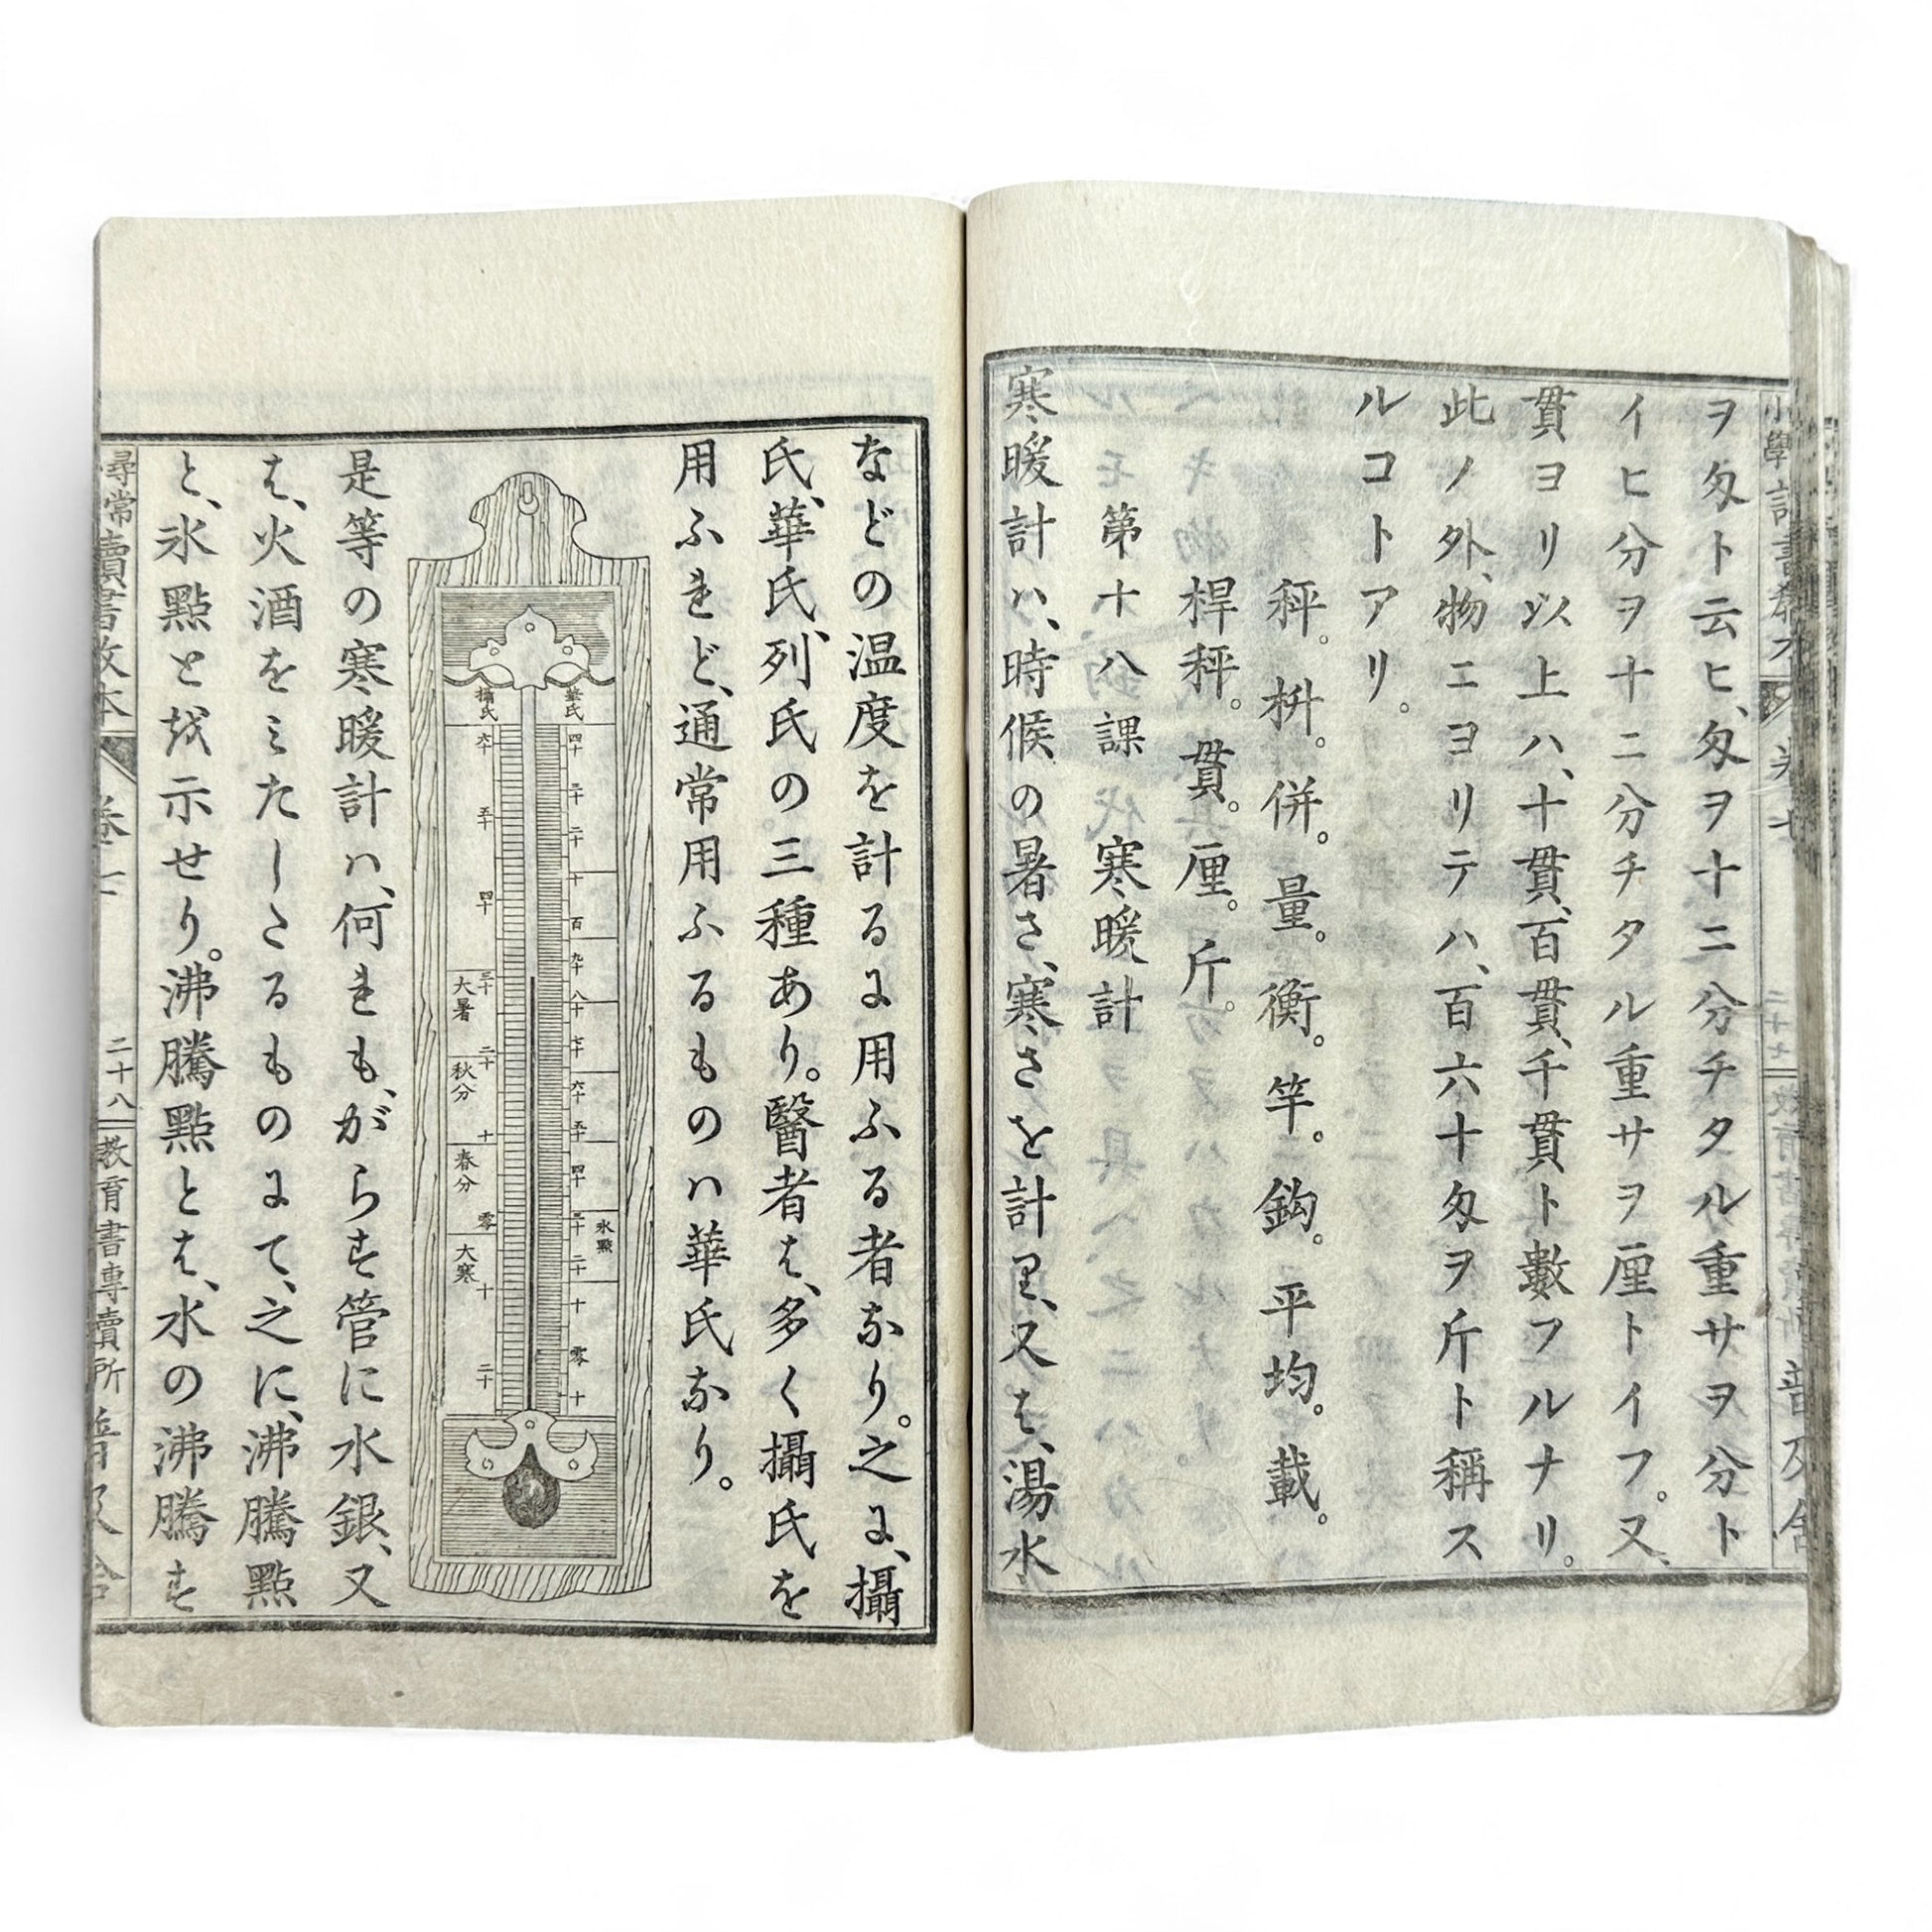 ヲ匁ト云ヒ、匁ヲ十ニ分チタル重サヲ分ト
イヒ分ヲ十ニ分チタル重サヲ厘トイフ。又、
貫ヨリ以上ハ、十貫、百貫、千貫ト數フルナリ。
此ノ外、物ニヨリテハ、百六十匁ヲ斤ト稱ス
ルコトアリ。
秤。枡。併。量。衡。竿。鈎。平均。載。
桿秤。貫。厘。斤。
第十八課 寒暖計
寒暖計ハ、時候の暑さ、寒さを計里、又は、湯水
二十七
などの温度を計るに用ふる者なり。之に、攝
氏、華氏、列氏の三種あり。醫者は、多く攝氏を
用ふれど、通常用ふるものハ華氏なり。
華氏
四十
三十
二十
十
百
九十
八十
七十
六十
五十
四十
三十
氷點
二十
十
零
十
攝氏
六十
五十
四十
三十
大暑
二十
秋分
十
春分
零
大寒
十
二十
是等の寒暖計ハ、何れも、がらす管に水銀、又
は、火酒をみたしたるものにて、之に、沸騰點
と、氷點とを示せり。沸騰點とは、水の沸騰す
尋常讀書教本 卷七 二十八 教育書專賣所 普及舍